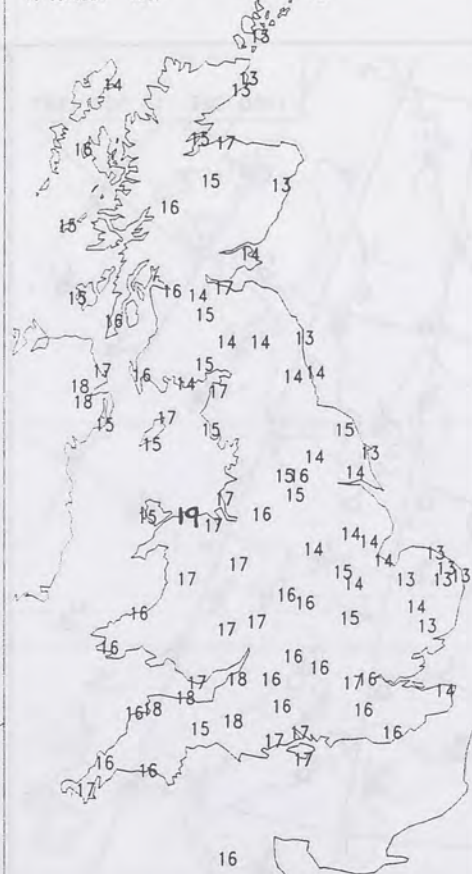 13
14 13
13
16 15 17
15 13
16
15
14
15 16 14 17
15
16
14 14 13
17 16 15
18 14 14 14
18 17
15 17 15 15
15 13
14
15 16 14
15
17
15 19 17 16
14 14
14 13
17 14 15 13 13
17 14 13 13
16 16 14
16 15
17 17 13
16
16 16
17 18 16 17 16 14
18
16 18 16 16
15 18 17
17 16
17
16 16
17
16